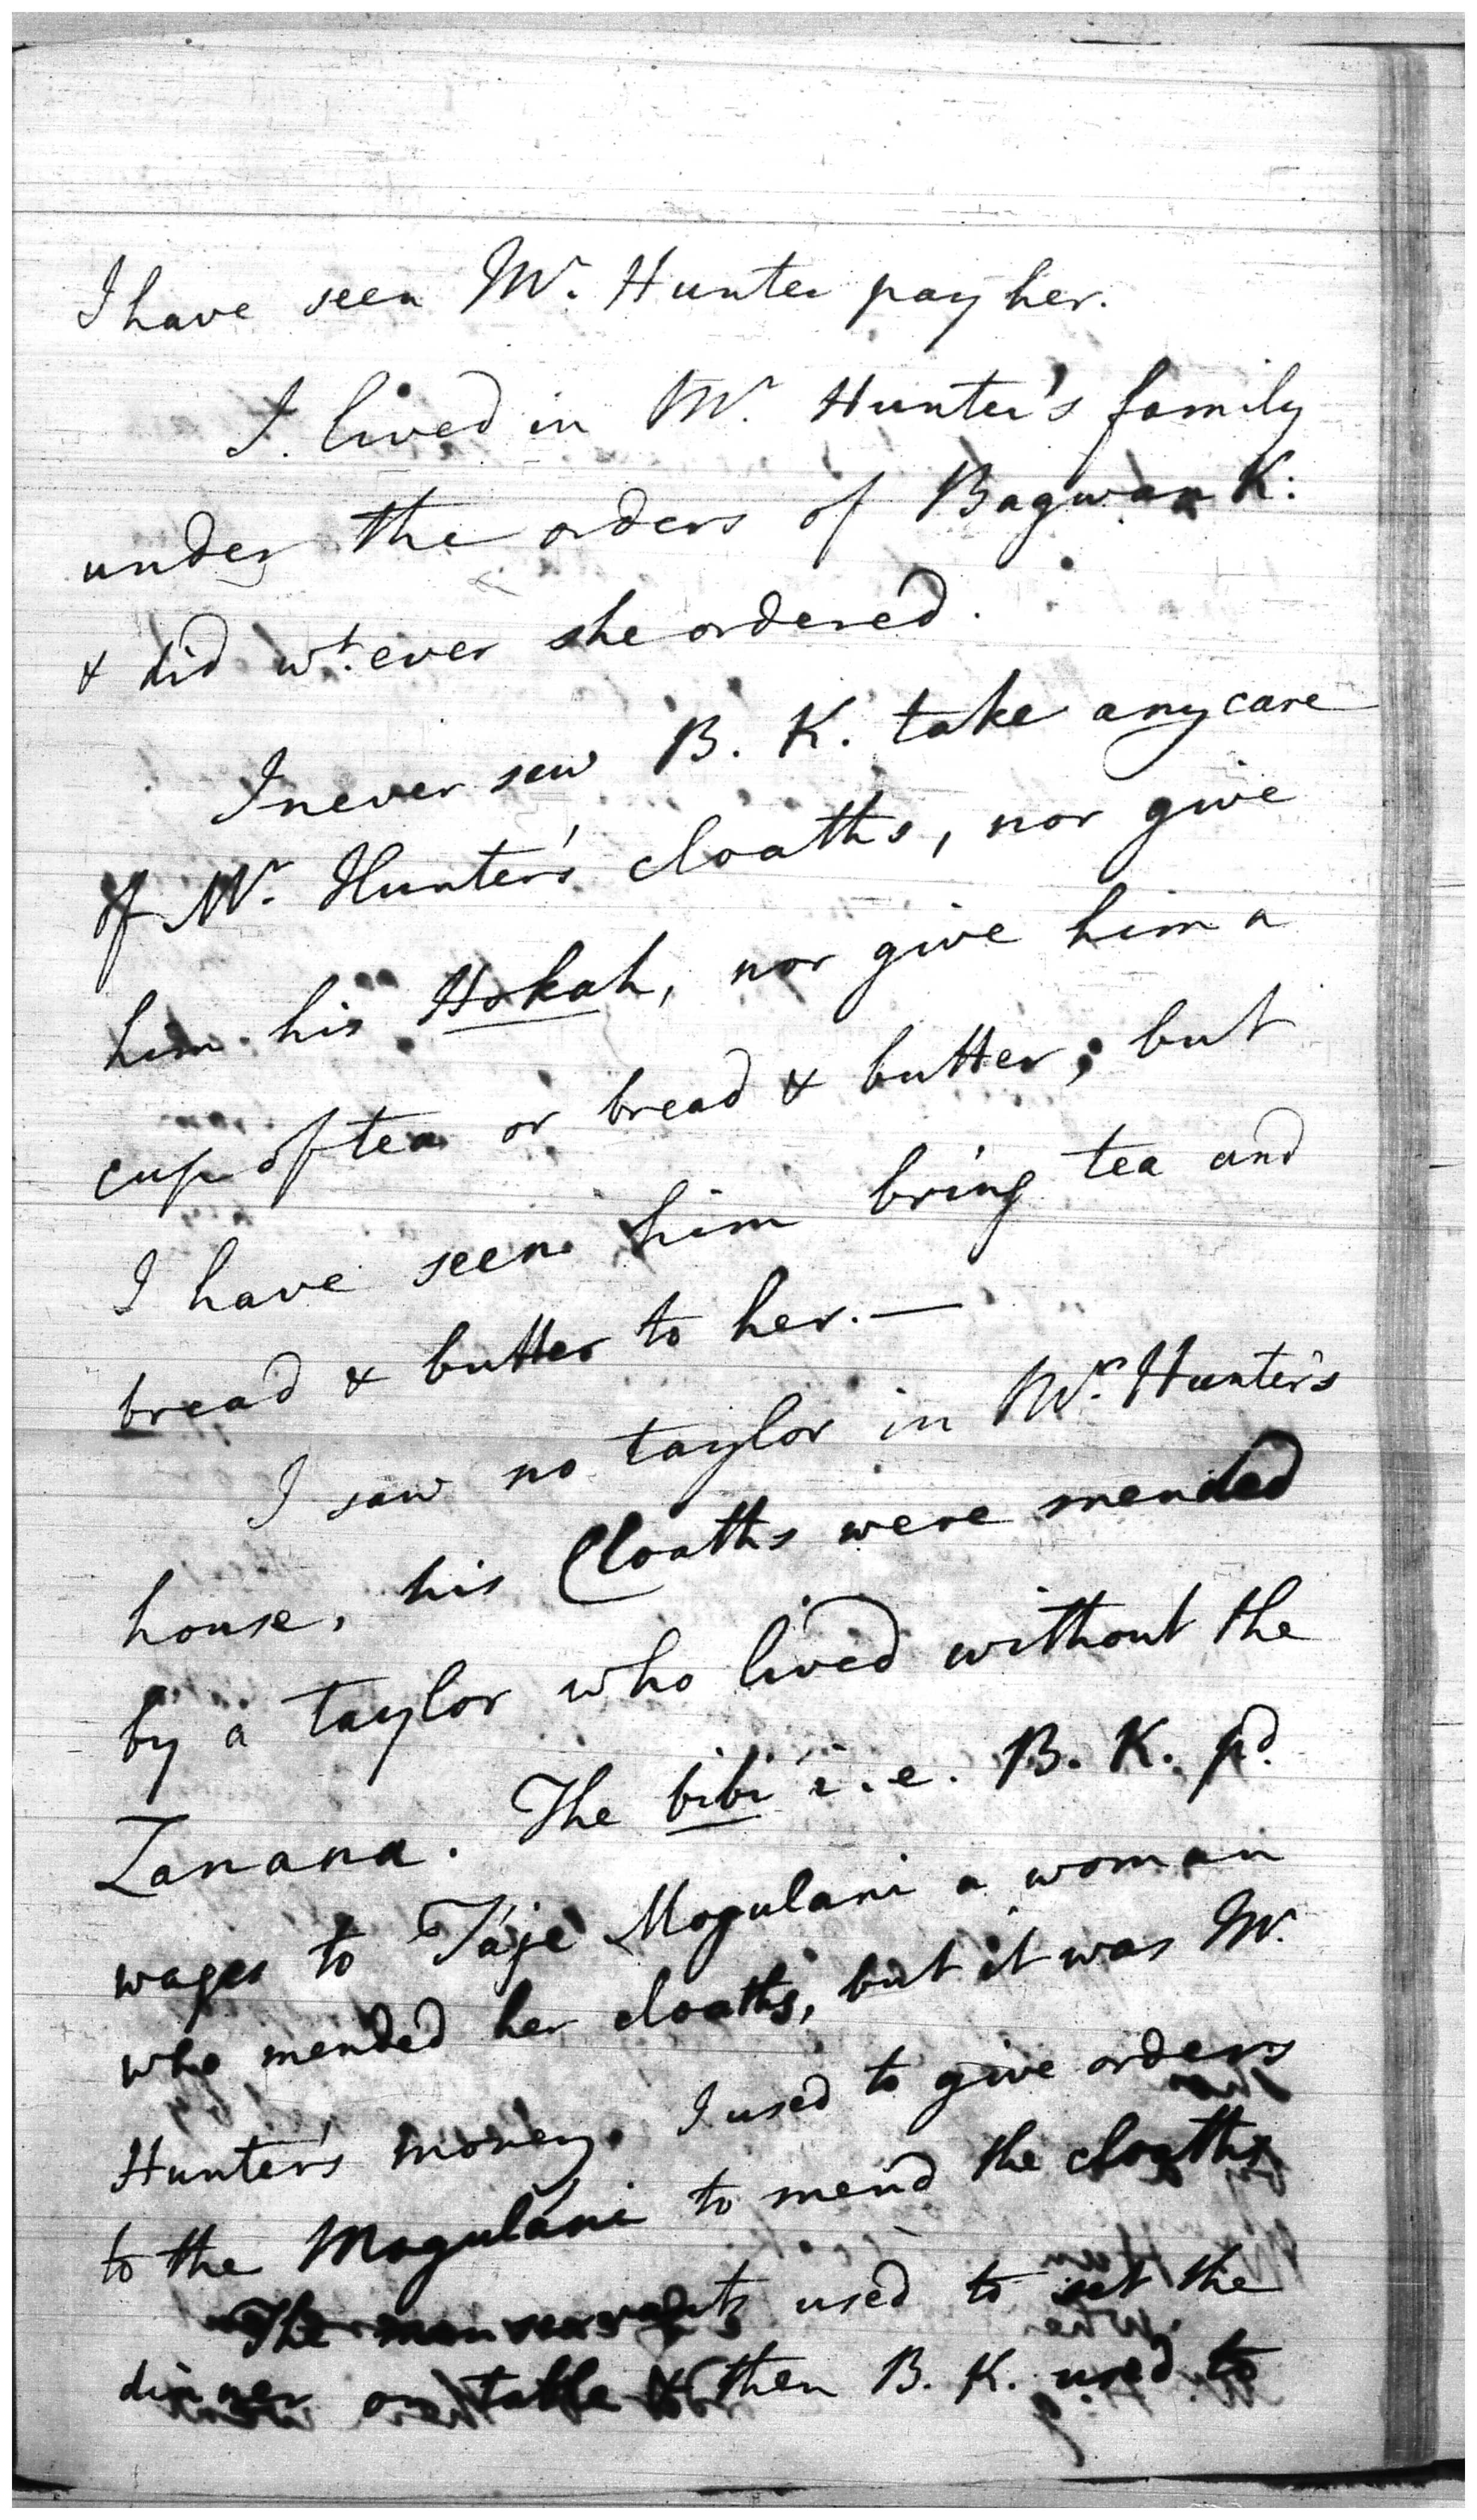 I have seen Mr. Hunter pay her.
I lived in Mr. Hunter's family
under the orders of Bagwan K:
& did wt. ever she ordered.
I never saw B. K. take any care
of Mr. Hunter's cloaths, nor give
him his Hokah, nor give him a
cup of tea or bread & butter; but
I have seen him bring tea and
bread & butter to her.—
I saw no taylor in Mr. Hunter's
house, his Cloaths were mended
by a taylor who lived without the
Zanana. The bibi i.e. B. K. pd.
wages to Táje Mogulani a woman
who mended her cloaths, but it was Mr.
Hunter's money. I used to give orders
to the Mogulání to mend the cloaths
The man servants used to set the
dinner on table & then B. K. used to